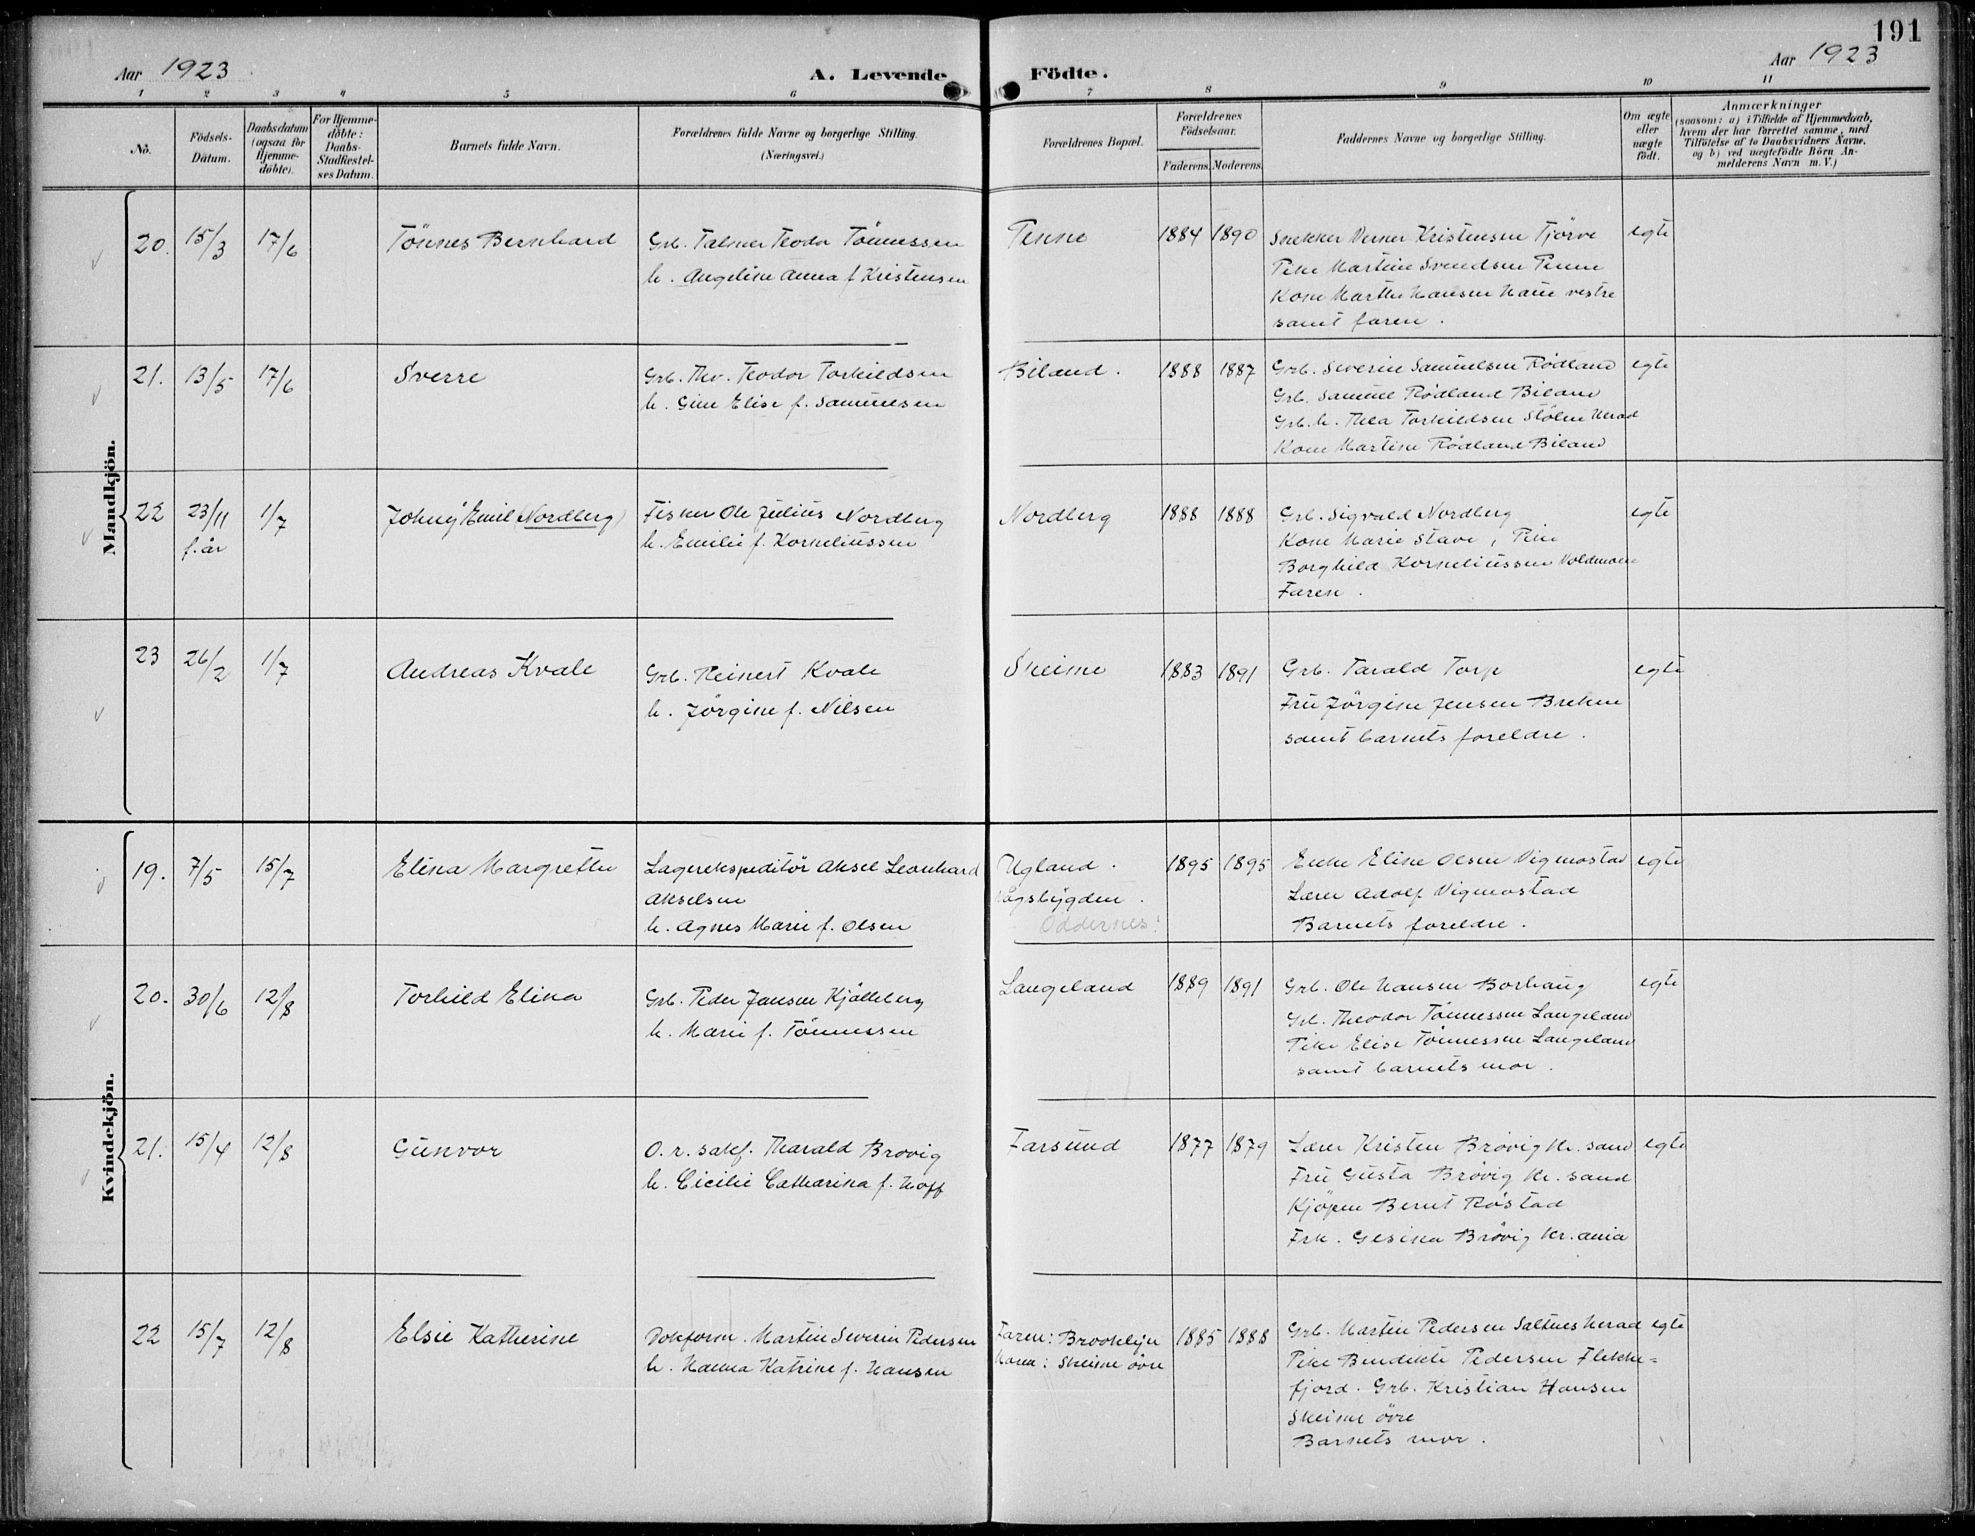 191
Aar 1923
A. Levende
Födte.
Aar 1923
1 2 3 4 5 6 7 8 9 10 11
No.
Födsels-Datum.
Daabsdatum (ogsaa for Hjemme-döbte).
For Hjemme-döbte: Daabs-Stadfæstel-ses Datum.
Barnets fulde Navn.
Forældrenes fulde Navne og borgerlige Stilling.
(Næringsvei.)
Forældrenes Bopæl.
Forældrenes Födselsaar.
Faderens. Moderens.
Faddernes Navne og borgerlige Stilling.
Om ægte eller uægte födt.
Anmærkninger
(saasom: a) i Tilfælde af Hjemmedaab,
hvem der har forrettet samme, med
Tilföielse af to Daabsvidners Navne,
og b) ved uægtefödte Börn An-
melderens Navn m. V.)
Mandkjön.
20. 15/3 17/6 Tönnes Bernhard
Grb. Teodor Tönnessen
h. Angeline Anna f. Kristensen
Penne 1884 1890
Snekker Verner Kristensen Tjörve
Pike Martine Svendsen Penne
Kone Marthe Hansen vestre
samt faren.
egte
21. 13/5 17/6 Sverre
Grb. Thv. Teodor Torkildsen
h. Gine Elise f. Samuelsen
Biland. 1888 1887
Grb. Severin Samuelsen Rödland
Grb. Samuel Rödland Biland
Grb. h. Thea Torkildsen Stölen Herad
Kone Martine Rödland Biland
egte
22 23/11 f. år 1/7 Johny Emil (Nordberg)
Fisker Ole Julius Nordberg
h. Emilie f. Korneliussen
Nordberg 1888 1888
Grb. Sigvald Nordberg
Kone Marie Stave, Pike
Borghild Korneliussen
Faren.
egte
23 26/2 1/7 Andreas Kvale
Grb. Reinert Kvale
h. Jörgine f. Nilsen
Skeime 1883 1891
Grb. Tarald Torp
Fru Jörgine Jensen Brekne
samt barnets foreldre.
egte
Kvindekjön.
19. 7/5 15/7 Elina Margrethe
Lagerekspeditör Aksel Leonhard
Akselsen
h. Agnes Marie f. Olsen
Ugland.
Vågsbygden.
Oddernes!
1895 1895
Enke Eline Olsen Vigmostad
Lærer Adolf Vigmostad
Barnets foreldre.
egte
20. 30/6 12/8 Torhild Elina
Grb. Peder Jansen Kjölleberg
h. Marie f. Tönnessen
Langeland 1889 1891
Grb. Ole Hansen Borhaug
Grb. Theodor Tönnessen Langeland
Pike Elise Tönnessen Langeland
samt barnets mor.
egte
21. 15/4 12/8 Gunvor
O. r. sakf. Tharald Brövig
h. Cicilie Catharina f. Hoff
Farsund 1877 1879
Lærer Kristen Brövig Kr. sand
Fru Gusta Brövig Kr. sand
Kjöpm Bernt Röstad
Frk. Gesina Brövig Kr. ania
egte
22 15/7 12/8 Elsie Katherine
Dokform. Martin Severin Pedersen
h. Hanna Katrine f. Hansen
Faren: Brooklyn
Moren: Skeime övre
1885 1888
Grb. Martin Pedersen Saltnes Herad
Pike Bendikte Pedersen Flekke=
fjord. Grb. Kristian Hansen
Skeime övre
Barnets mor.
egte